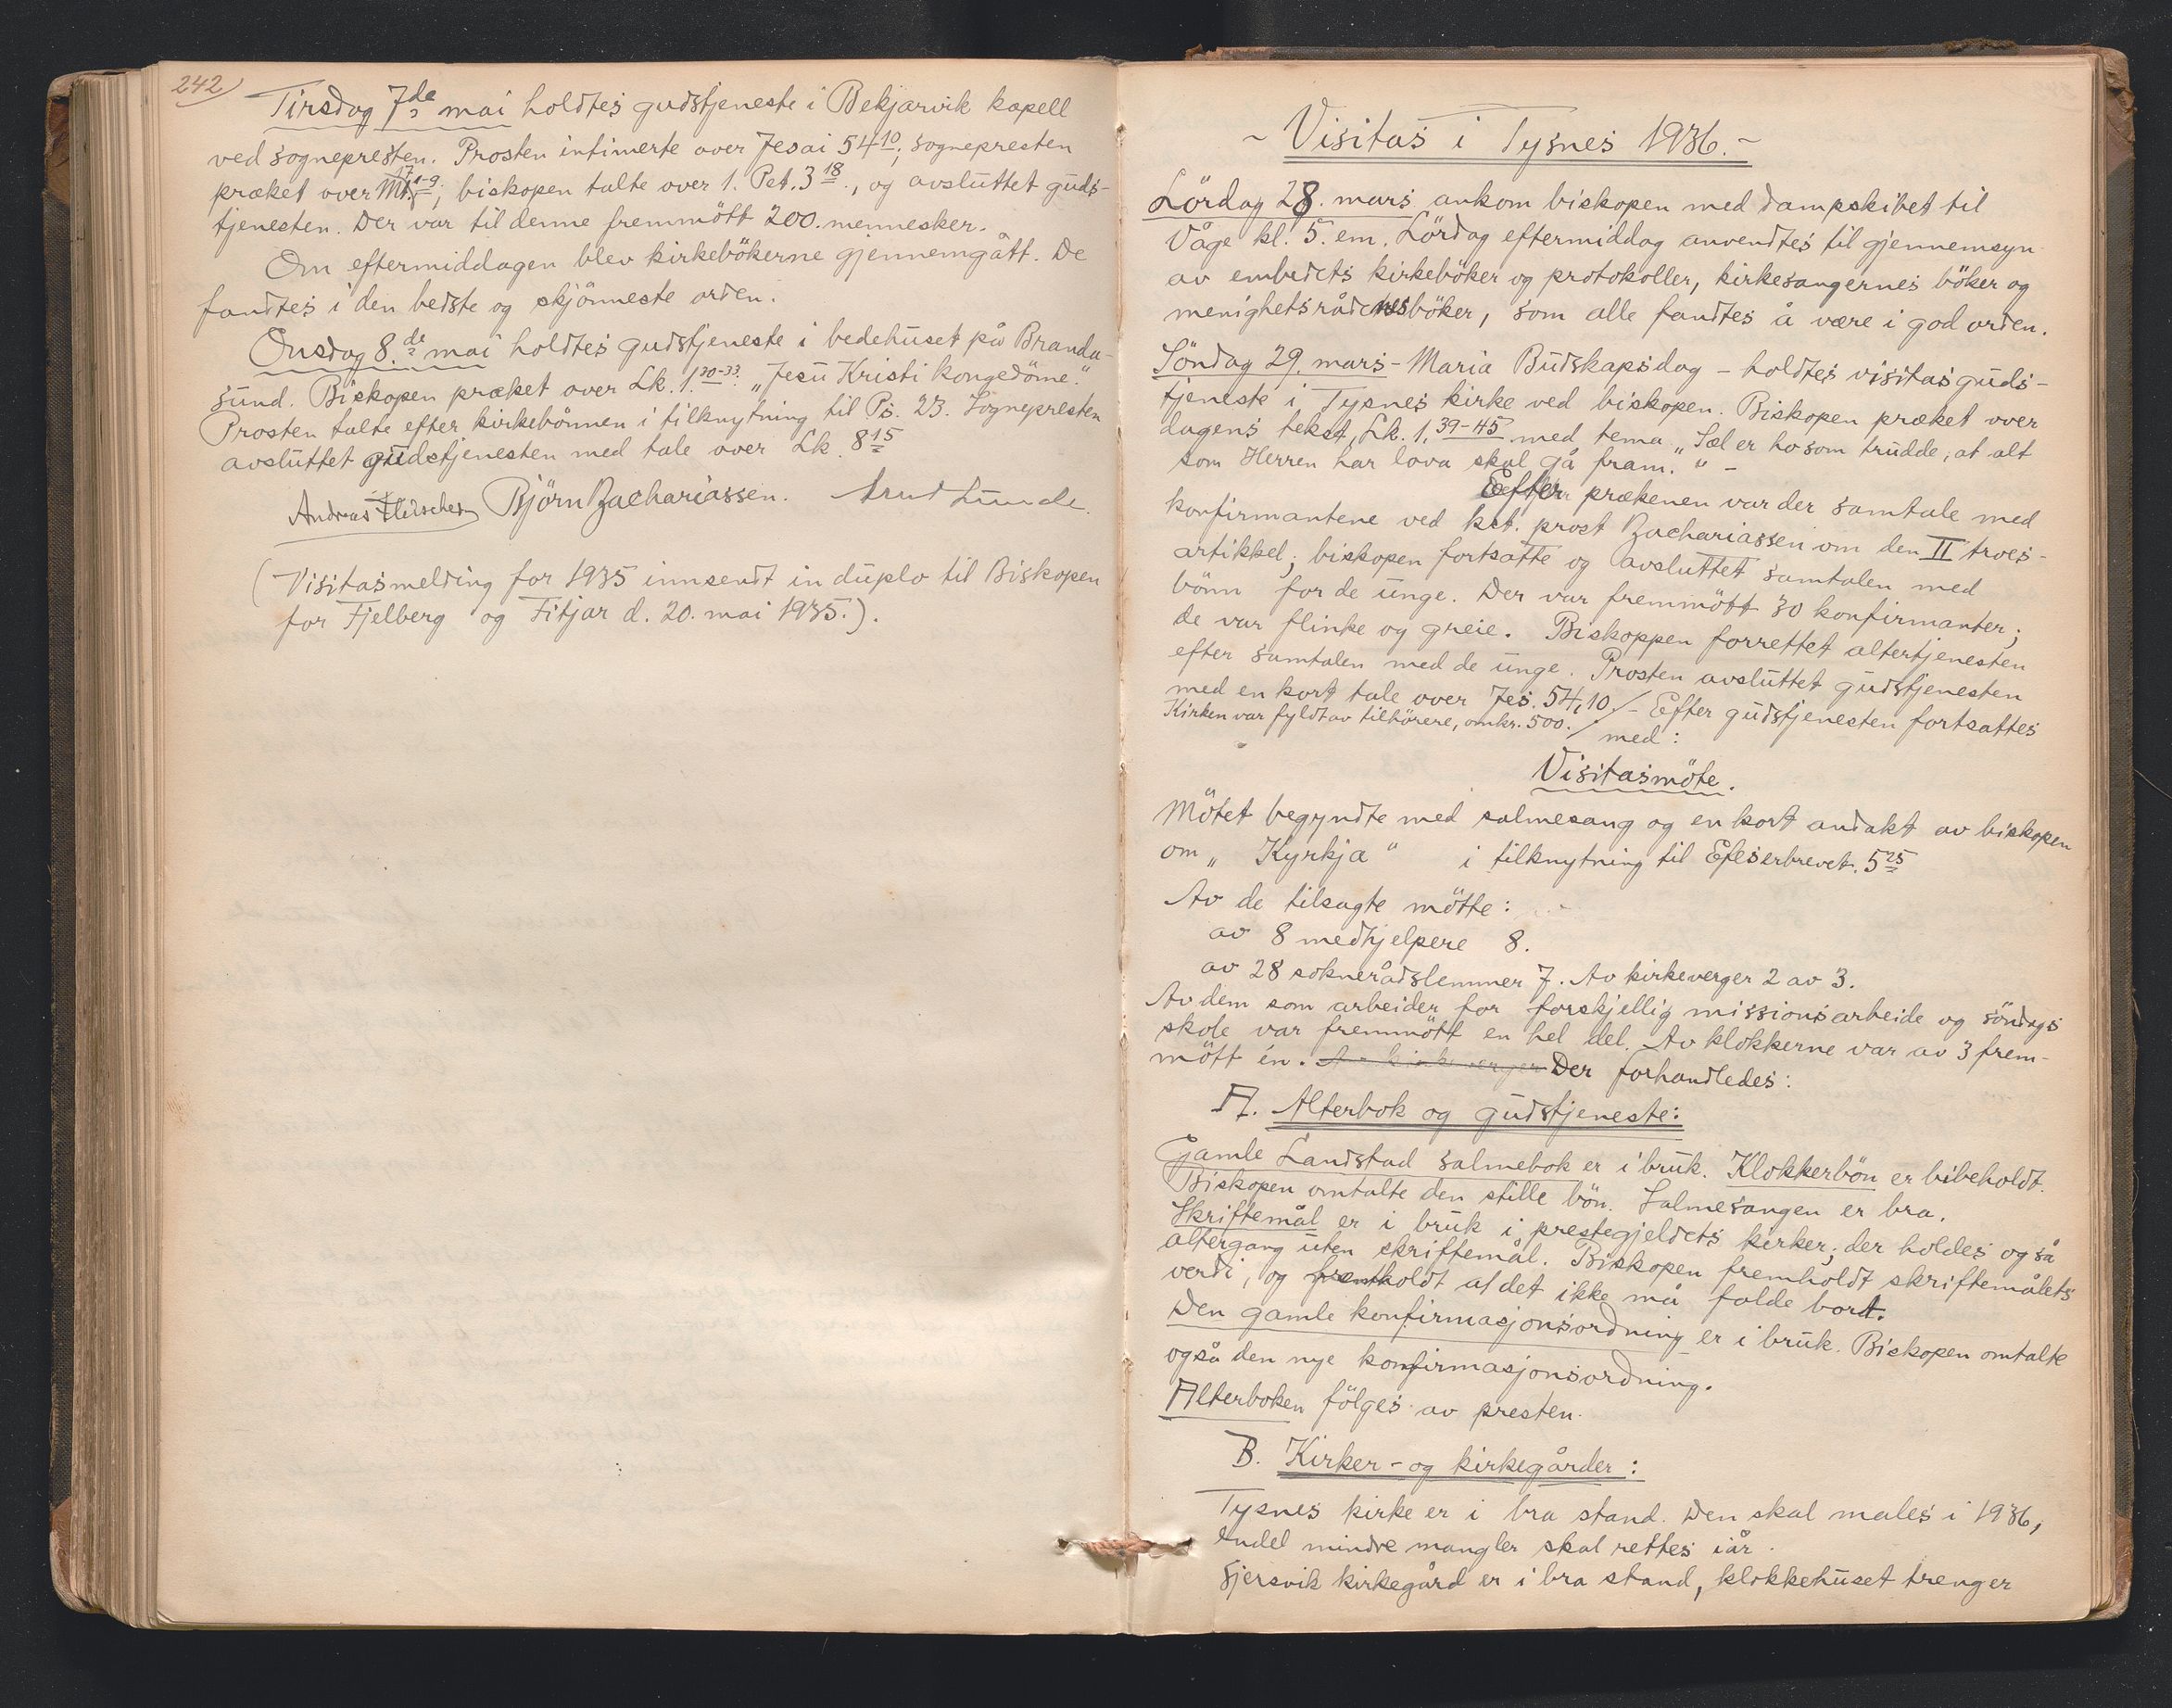 242
Tirsdag 7de mai holdtes gudstjeneste i Bekjarvik kapell
ved sognepresten. Prosten intimerte over Jesai 54 10; sognepresten
præket over Mt. 17 1-9; biskopen talte over 1. Pet. 3 18., og avsluttet guds-
tjenesten. Der var til denne fremmött 200. mennesker.
Om eftermiddagen blev kirkebökerne gjennemgått. De
fandtes i den bedste og skjönneste orden.
Onsdag 8.de mai holdtes gudstjeneste i bedehuset på Branda-
sund. Biskopen præket over Lk. 1. 30-33: „Jesu Kristi kongedöme."
Prosten talte efter kirkebönnen i tilknytning til Ps. 23. Sognepresten
avsluttet gudstjenesten med tale over Lk. 8 15
Andreas Fleischer Björn Zachariassen. Arnt Lunde.
(Visitasmelding for 1935 innsendt in duplo til Biskopen
for Fjelberg og Fitjar d. 20. mai 1935.).
- Visitas i Tysnes 1936. -
Lördag 28. mars ankom biskopen med dampskibet til
Våge kl. 5. em. Lördag eftermiddag anvendtes til gjennemsyn
av embedets kirkeböker og protokoller, kirkesangernes böker og
menighetsrådenesböker, som alle fandtes å være i god orden.
Söndag 29. mars - Maria Budskapsdag - holdtes visitasguds-
tjeneste i Tysnes kirke ved biskopen. Biskopen præket over
dagens tekst, Lk. 1, 39-45 med tema „Sæl er ho som trudde, at alt
som Herren har lova skal gå fram." -
Efter prækenen var der samtale med
konfirmantene ved kst. prost Zachariassen om den II troes-
artikkel; biskopen fortsatte og avsluttet samtalen med
bönn for de unge. Der var fremmött 30 konfirmanter;
de var flinke og greie. Biskoppen forrettet altertjenesten
efter samtalen med de unge. Prosten avsluttet gudstjenesten
med en kort tale over Jes. 54, 10. / - Efter gudstjenesten fortsattes
Kirken var fyldt av tilhörere, omkr. 500. / med:
Visitasmöte.
Mötet begyndte med salmesang og en kort andakt av biskopen
om „Kyrkja" i tilknytning til Efeserbrevet. 5 25
Av de tilsagte mötte:
av 8 medhjelpere 8.
av 28 soknerådslemmer 7. Av kirkeverger 2 av 3.
Av dem som arbeider for forskjellig missionsarbeide og söndags
skole var fremmött en hel del. Av klokkerne var av 3 frem-
mött én. Av kirkeverger Der forhandledes:
A. Alterbok og gudstjeneste:
Gamle Landstad salmebok er i bruk. Klokkerbön er bibeholdt.
Biskopen omtalte den stille bön. Salmesangen er bra.
Skriftemål er i bruk i prestegjeldets kirker; der holdes også
altergang uten skriftemål. Biskopen fremholdt skriftemålets
verdi, og fremholdt at det ikke må falde bort.
Den gamle konfirmasjonsordning er i bruk. Biskopen omtalte
også den nye konfirmasjonsordning.
Alterboken fölges av presten.
B. Kirker - og kirkegårder:
Tysnes kirke er i bra stand. Den skal males i 1936,
endel mindre mangler skal rettes iår.
Gjersvik kirkegård er i bra stand, klokkehuset trenger